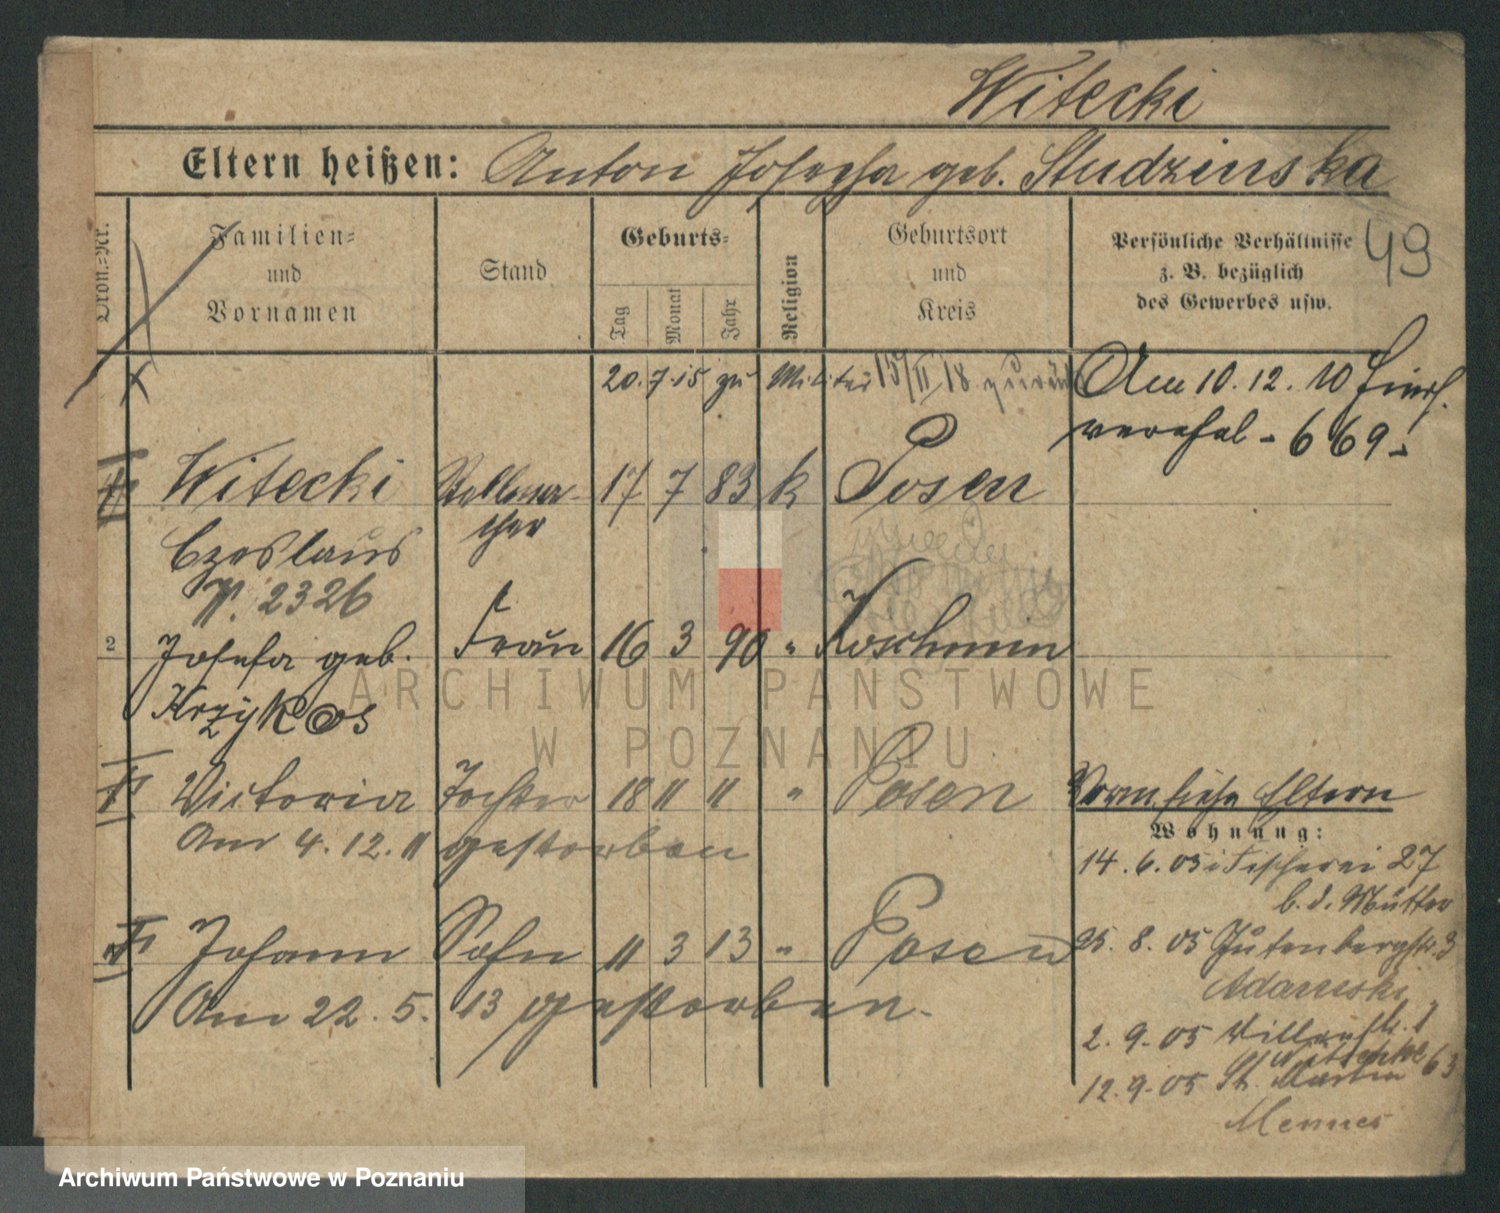 Witecki
Eltern heißen: Anton Josepha geb. Studzinska
Ordn.-Nr.
Familien-
und
Vornamen
Stand
Geburts-
Tag
Monat
Jahr
Religion
Geburtsort
und
Kreis
Persönliche Verhältnisse
z. B. bezüglich
des Gewerbes usw.
49
20.7.15 zu Militär 15/II 18 zurück
Am 10.12.10
669
Witecki Stellma- 17 7 83 k Posen
cher
Czeslaus
2326
2 Josefa geb. Frau 16 3 90 " Koschmin
Krzykos
Victoria Tochter 18 11 11 " Posen
Am 4.12.11 gestorben
Vorm. siehe Eltern
Wohnung:
14.6.05 Fischerei 27
b. d. Mutter
Johann Sohn 11 3 13 " Posen
Am 22.5.13 gestorben.
25.8.05 Gutenbergstr. 3
Adamski
2.9.05
12.9.05 St. Martin 63
ARCHIWUM PAŃSTWOWE
W POZNANIU
Archiwum Państwowe w Poznaniu